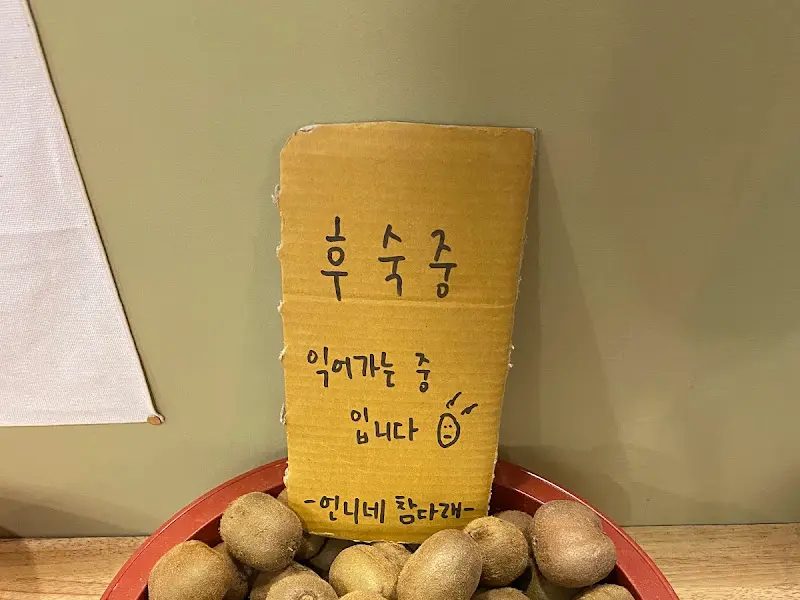 후숙중
익어가는 중
입니다
-언니네 참다래-